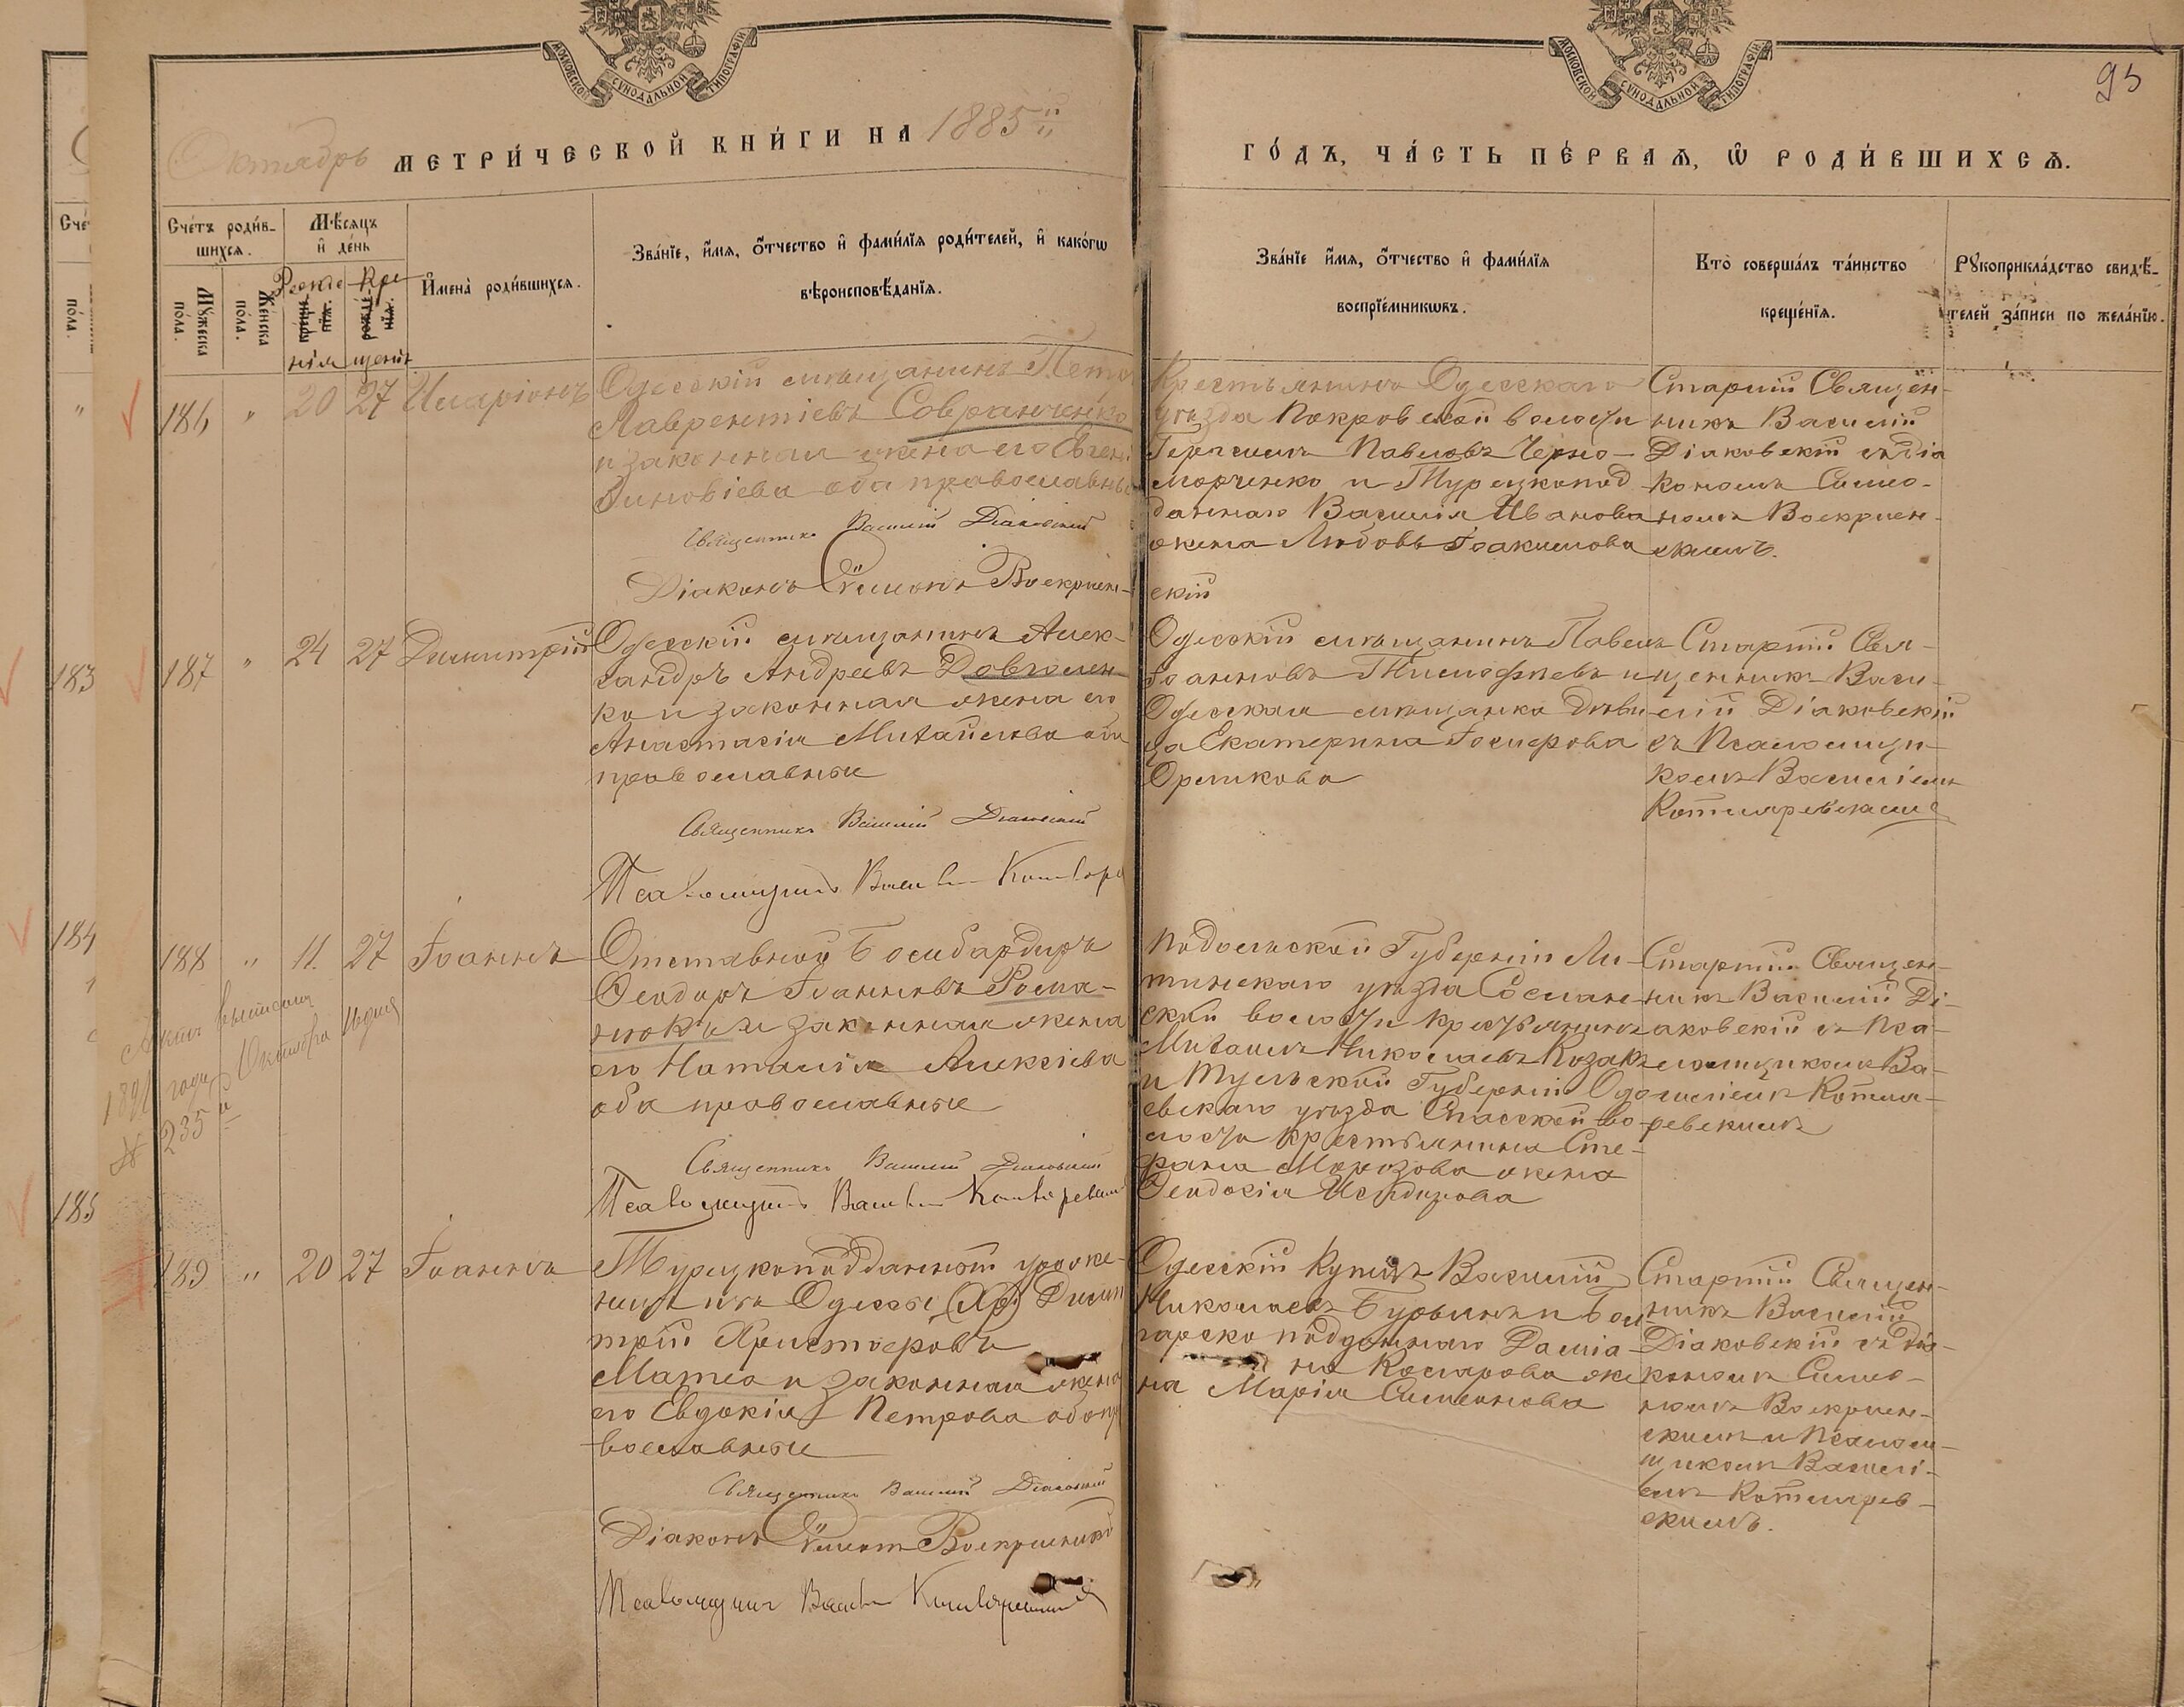 МОСКОВСКОЙ СУНОДАЛЬНОЙ ТИПОГРАФІИ
МОСКОВСКОЙ СУНОДАЛЬНОЙ ТИПОГРАФІИ
95
Октябрь МЕТРИ́ЧЕСКОЙ КНИ́ГИ НА 1885й
ГО́ДЪ, ЧА́СТЬ ПЕ́РВАѦ, Ѡ҆ РОДИ́ВШИХСѦ.
Сче́тъ роди́в-
шихсѧ.
Мѣ́сѧцъ
и҆ де́нь
Мꙋ́жеска по́ла.
Же́нска по́ла.
Рожде-
нія
Кре-
щенія
И҆мена̀ роди́вшихсѧ.
Зва́нїе, и҆́мѧ, ѻ҆́тчество и҆ фами́лїѧ роди́телей, и҆ како́гѡ
вѣроисповѣ́данїѧ.
Зва́нїе и҆́мѧ, ѻ҆́тчество и҆ фами́лїѧ
воспрїе́мникѡвъ.
Кто̀ соверша́лъ та́инство
креще́нїѧ.
Рꙋкоприкла́дство свидѣ́-
телей за́писи по жела́нїю.
186 " 20 27 Иларіонъ
Одесскій мѣщанинъ Петр
Лаврентіевъ Совранченко
и законная жена его Евген
Зиновіева оба православные
Священникъ Василій Діаковскій
Діаконъ Сѵмеонъ Воскресен-
Крестьянинъ Одесскаго
уѣзда Покровской волости
Герасимъ Павловъ Черно-
морченко и Турецкопод
даннаго Василія Иванова
жена Любовь Іоакимова
скій
Старшій Священ-
никъ Василій
Діаковскій съ діа
кономъ Симео-
номъ Воскресен-
скимъ.
183
187 " 24 27 Димитрій
Одесскій мѣщанинъ Алек-
сандръ Андреевъ Довголен-
ко и законная жена его
Анастасія Михайлова оба
православные
Священникъ Василій Діаковскій
Псаломщикъ Васил Котляре
Одесскій мѣщанинъ Павелъ
Іоанновъ Тимофѣевъ и
Одесская мѣщанка дѣви-
ца Екатерина Іосифова
Орликова
Старшій Свя-
щенникъ Васи-
лій Діаковскій
съ Псаломщи-
комъ Василіемъ
Котляревскимъ
184
188 " 11. 27 Іоаннъ
Отставной Бомбардиръ
Ѳеодоръ Іоанновъ Рома-
нюкъ и законная жена
его Наталія Алексіева
оба православные
Священникъ Василій Діаковскій
Псаломщикъ Васил Котляревскі
Подольской Губерніи Ли-
тинскаго уѣзда
ской волости крестьянинъ
Михаилъ Николаевъ Козакъ
и Тульской Губерніи Одо-
евскаго уѣзда Спасской во-
лости крестьянина Сте-
фана Морозова жена
Ѳеодосія Исидорова
Старшій Священ-
никъ Василій Ді-
аковскій съ Пса-
ломщикомъ Ва-
силіемъ Котля-
ревскимъ
1891 года Октября
№ 235й
185
189 " 20 27 Іоаннъ
Турецкоподданный уроже-
нецъ изъ Одессы Дими
трій Христофоровъ
Матео и законная жена
его Евдокія Петрова оба пр
вославные
Священникъ Василій Діаковскій
Діаконъ Сѵмеон Воскресенскій
Псаломщикъ Васил Котляревскій
Одесскій купецъ Василій
Николаевъ и Бол-
гарско подданнаго Даміа-
на Комарова же
на Марія Симеонова
Старшій Священ-
никъ Василій
Діаковскій съ діа-
кономъ Симео-
номъ Воскресен-
скимъ и Псалом-
щикомъ Василі-
емъ Котлярев-
скимъ.